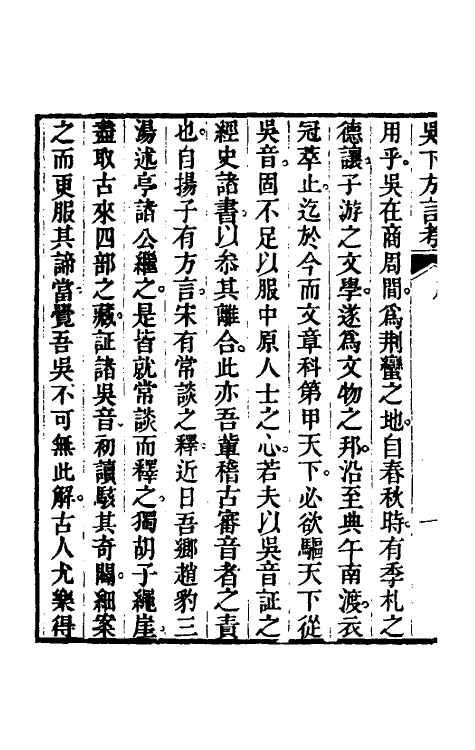 吳下方言考
一
用乎。吳在商周間。爲荆蠻之地。自春秋時。有季札之
德讓。子游之文學。遂爲文物之邦。沿至典午南渡。衣
冠萃止。迄於今而文章科第甲天下。必欲驅天下從
吳音。固不足以服中原人士之心。若夫以吳音証之
經史諸書。以叅其離合。此亦吾輩稽古審音者之責
也。自揚子有方言。宋有常談之釋。近日吾鄉趙豹三
湯述亭諸公繼之。是皆就常談而釋之。獨胡子繩崖。
盡取古來四部之藏。証諸吳音。初讀駭其奇闢。細案
之而更服其諦當。覺吾吳不可無此解。古人尤樂得